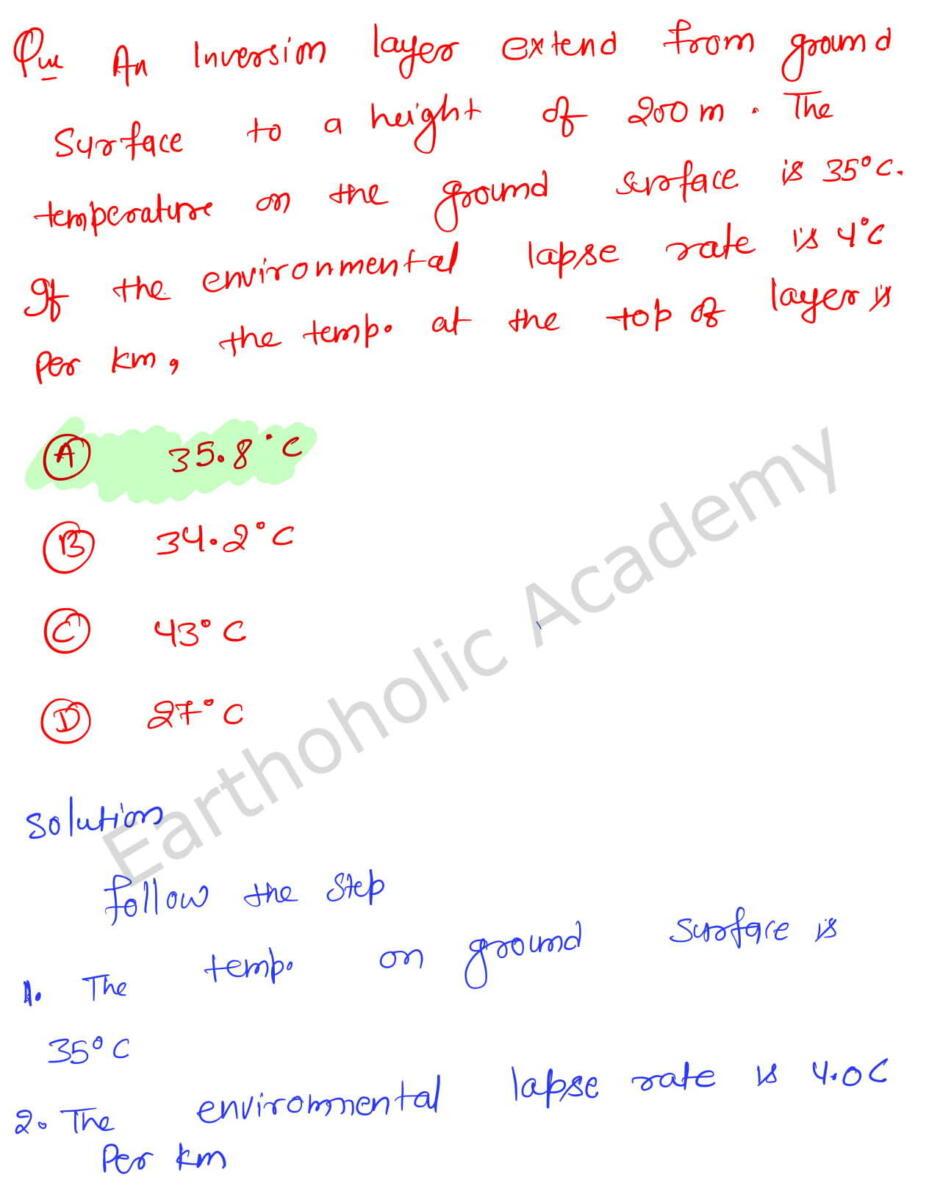 Que An Inversion layer extend from ground
Surface to a height of 200 m . The
temperature on the ground surface is 35°C.
If the environmental lapse rate is 4°C
Per km, the temp. at the top of layer is
A 35.8°C
B 34.2°C
C 43°C
D 27°C
Earthoholic Academy
Solution
follow the step
1. The temp. on ground surface is
35°C
2. The environmental lapse rate is 4.0C
Per km